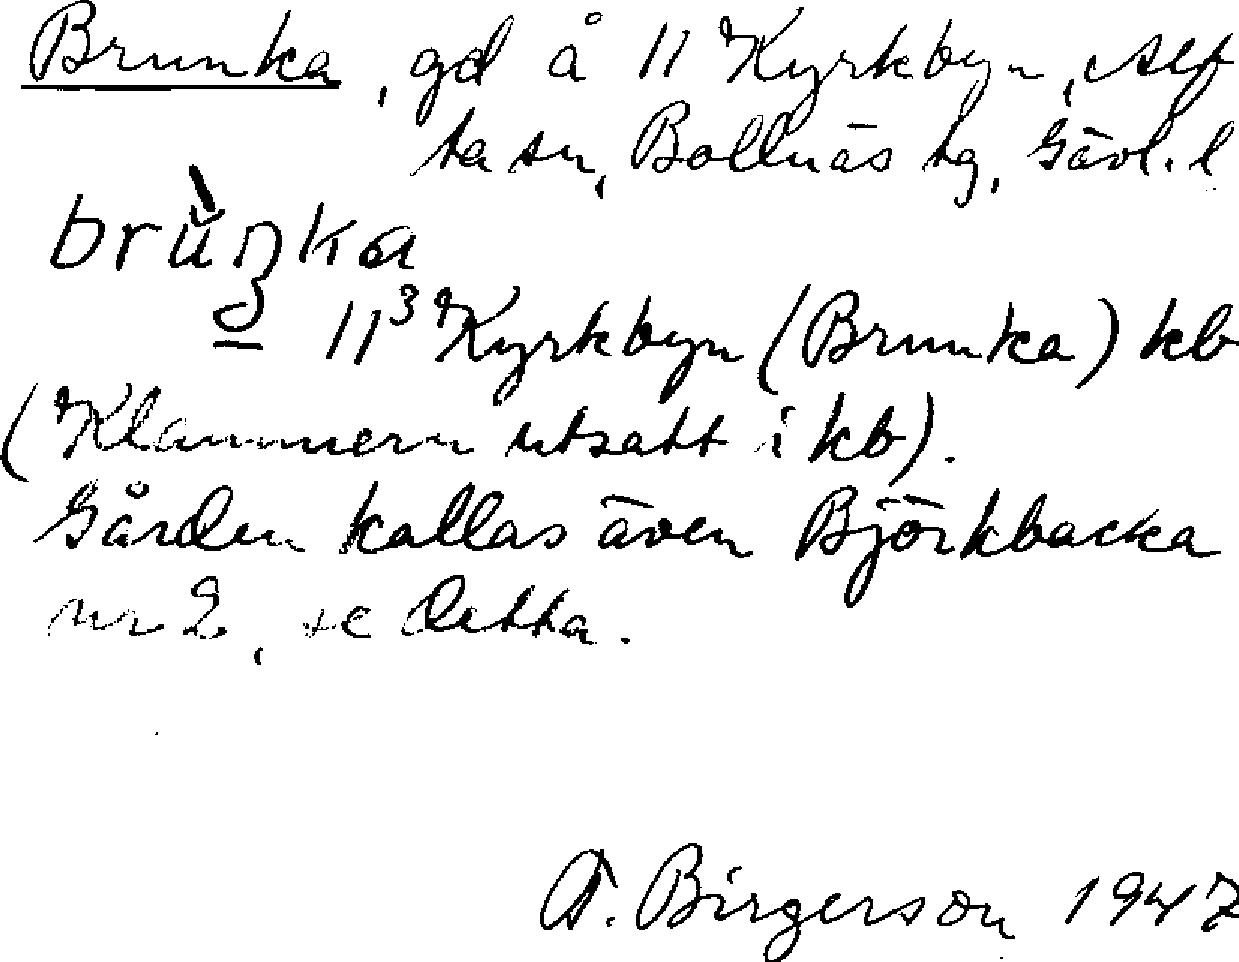 Brunka, gd å 11 Kyrkbyn, Alf
ta sn, Bollnäs tg, Gävl. l
brùŋka
11³ Kyrkbyn (Brunka) kb
(Klammern utsatt i kb).
Gården kallas även Björkbacka
nr 2, se detta.
A. Birgerson 1947